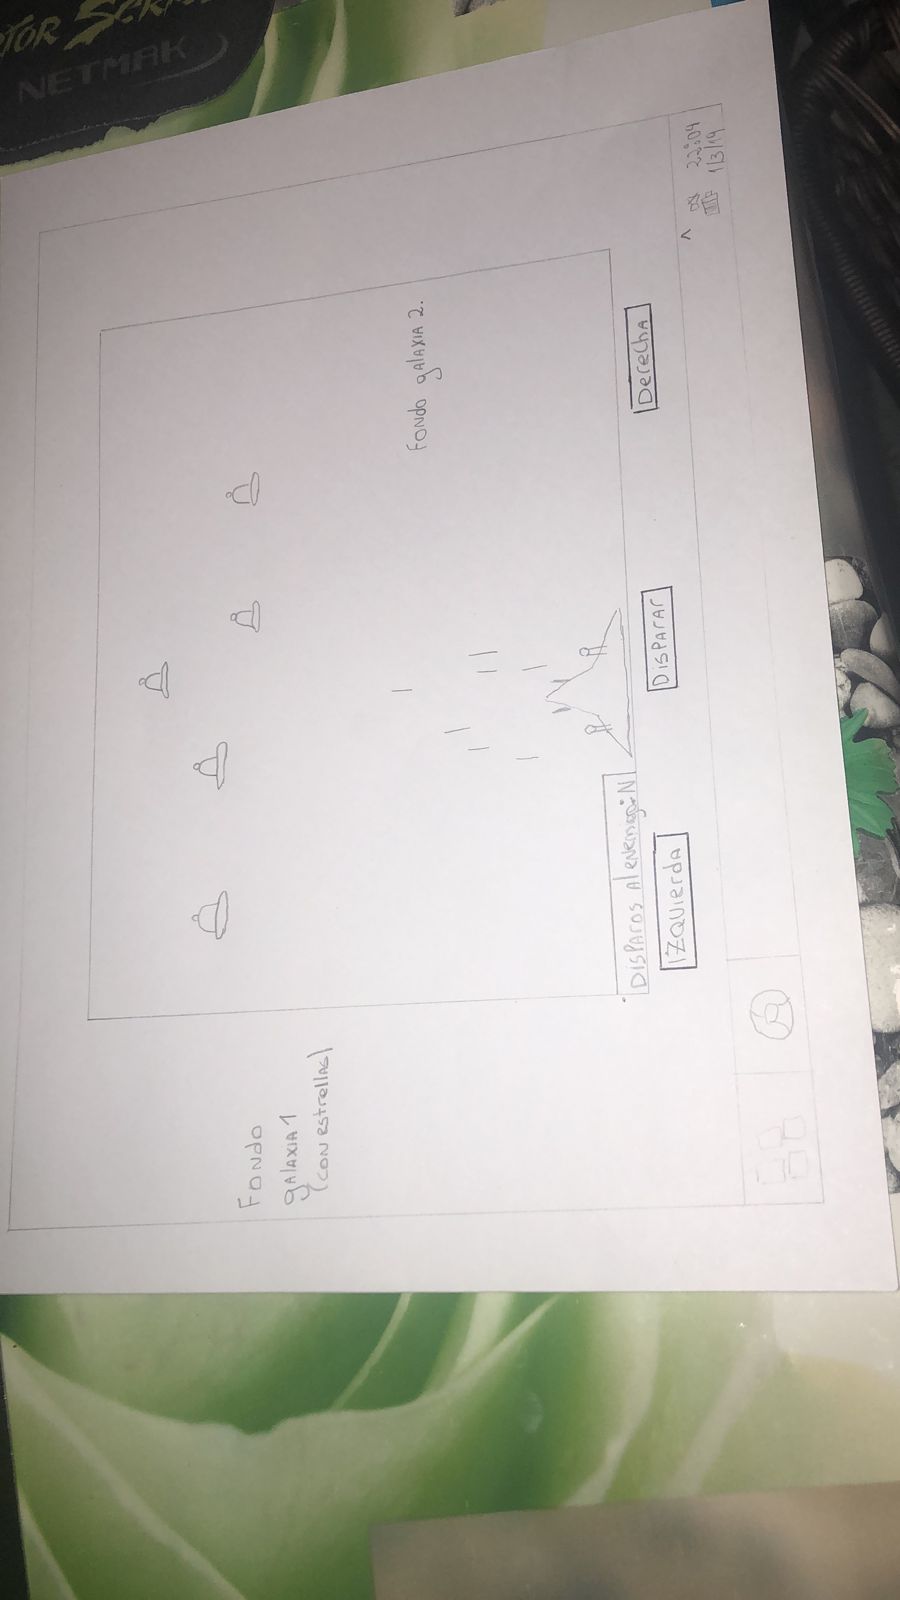 NETMAK
Fondo
galaxia 1
(con estrellas)
Fondo galaxia 2.
Disparos al enemigo: N
Izquierda
Disparar
Derecha
22:04
1/3/19